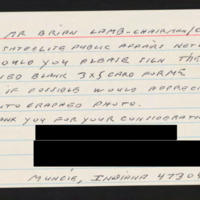 MR BRIAN LAMB - CHAIRMAN/C
SATELLITE PUBLIC AFFAIRS NET
OULD YOU PLEASE SIGN THE
SED BLANK 3X5 CARD FORME
IF POSSIBLE WOULD APPREC
UTOGRAPHED PHOTO.
ANK YOU FOR YOUR CONSIDERAT
MUNCIE, INDIANA 47304